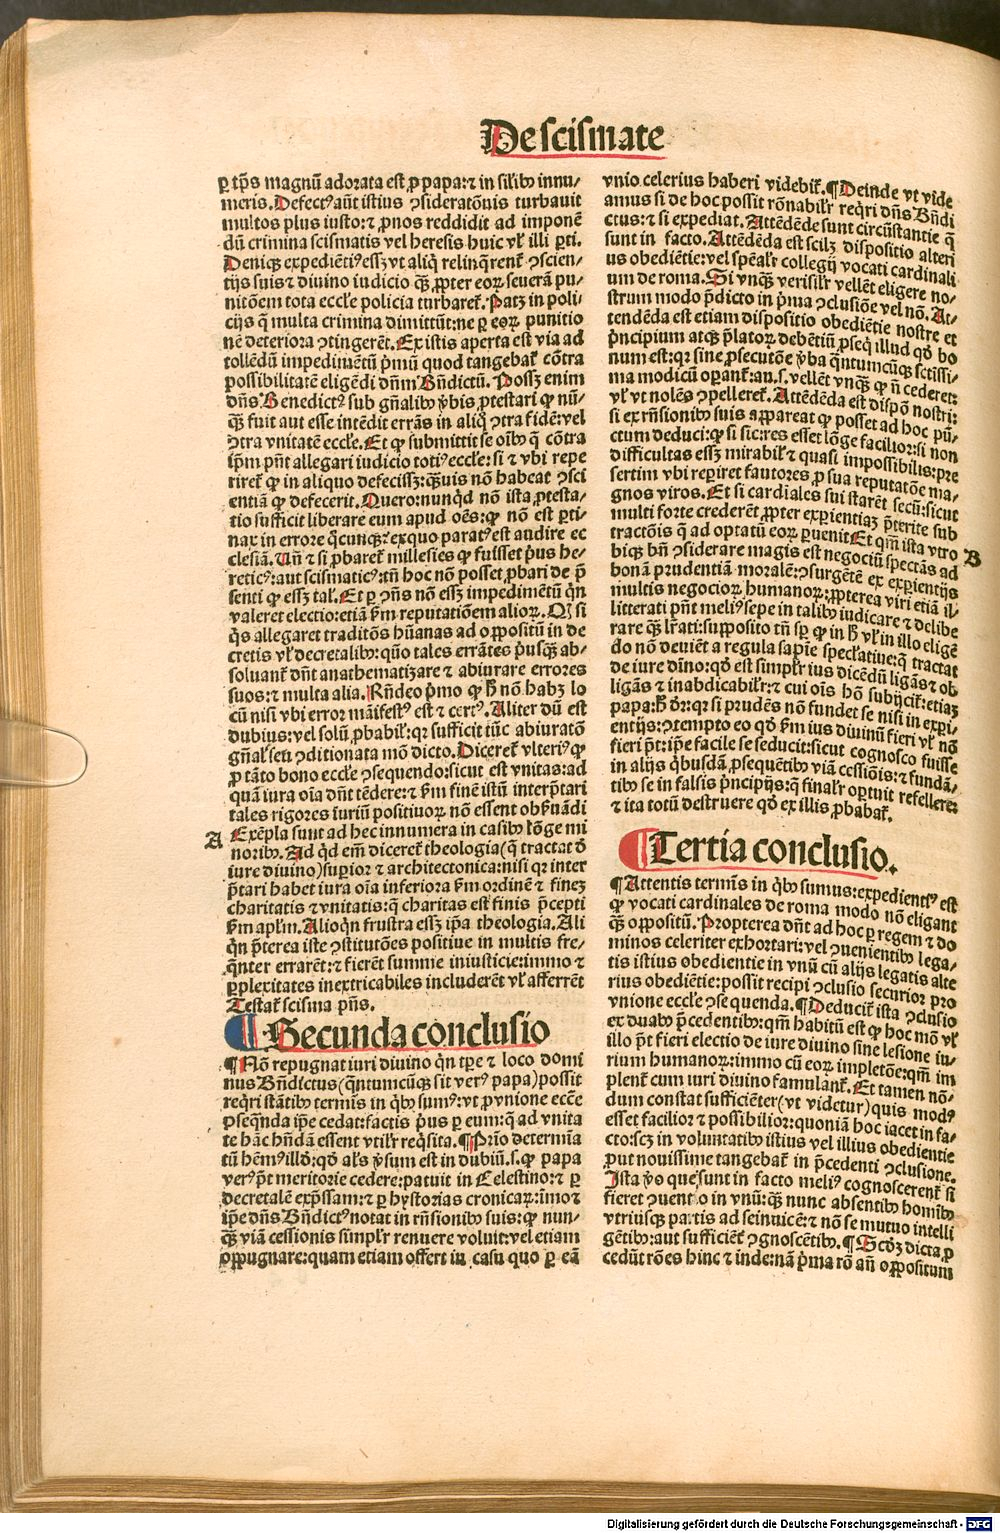 De scismate
ꝑ tp̄s magnū adorata est ꝓ papa:⁊ in silibꝰ innu⸗
meris. Defectꝰ aūt istius ꝯsideratōnis turbauit
multos plus iusto:⁊ ꝓnos reddidit ad imponē
dū crimina scismatis vel heresis huic vl' illi ꝑti.
Deniqꝫ expediētiꝰ essꝫ vt aliq̄ relinq̄renť ꝯscien⸗
tijs suis ⁊ diuino iudicio qꝫ ꝓpter eoꝝ seuerā pu⸗
nitōem tota eccle policia turbareť. Patꝫ in poli⸗
cijs q̄ multa crimina dimittūt:ne ꝑ eoꝝ punitio
nē deteriora ꝯtingerēt. Ex istis aperta est via ad
tollēdū impedimētū p̄mū quod tangebať cōtra
possibilitatē eligēdi dn̄m Bn̄dictū. Possꝫ enim
dn̄s Benedictꝰ sub gn̄alibꝰ v̄bis ꝓtestari ꝙ nū⸗
qꝫ fuit aut esse intēdit errās in aliq̊ ꝯtra fidē:vel
ꝯtra vnitatē eccle. Et ꝙ submittit se oībꝰ q̄ cōtra
ip̄m pn̄t allegari iudicio totiꝰ eccle: si ⁊ vbi repe
rireť ꝙ in aliquo defecissꝫ:qꝫuis nō habeat ꝯsci
entiā ꝙ defecerit. Quero:nunq̇d nō ista ꝓtesta⸗
tio sufficit liberare eum apud oēs:ꝙ nō est ꝑti⸗
nax in errore q̊cunqꝫ:exquo paratꝰ est audire ec
clesiā. Un̄ ⁊ si ꝓbareť millesies ꝙ fuisset p̄us he⸗
reticꝰ:aut scismaticꝰ:tn̄ hoc nō posset ꝓbari de p̄
senti ꝙ essꝫ tal'. Et ꝑ ꝯn̄s nō essꝫ impedimētū q̇n
valeret electio:etiā ẜm reputatiōem alioꝝ. Qꝫ si
q̇s allegaret traditōs hūanas ad oppositū in de
cretis vl' decretalibꝰ:quō tales errātes p̄usqꝫ ab⸗
soluanť dn̄t anathematizare ⁊ abiurare errores
suos:⁊ multa alia. Rn̄deo p̄mo ꝙ ħ nō habꝫ lo
cū nisi vbi error māifestꝰ est ⁊ certꝰ. Aliter dū est
dubius:vel solū ꝓbabil':qꝛ sufficit tūc abiuratō
gn̄al' seu ꝯditionata mō dicto. Dicereť vlteriꝰ ꝙ
ꝓ tāto bono eccle ꝯsequendo:sicut est vnitas:ad
quā iura oīa dn̄t tēdere:⁊ ẜm finē istū interp̄tari
tales rigores iuriū positiuoꝝ nō essent obẜuādi
A Exēpla sunt ad hec innumera in casibꝰ lōge mi
noribꝰ. Ad q̇d em̄ diceret theologia(q̄ tractat ð
iure diuino)suꝑior ⁊ architectonica:nisi qꝛ inter
p̄tari habet iura oīa inferiora ẜm ordinē ⁊ fineꝫ
charitatis ⁊ vnitatis:q̄ charitas est finis p̄cepti
ẜm apl'm. Alioq̇n frustra essꝫ ip̄a theologia. Ali
q̇n p̄terea iste ꝯstitutōes positiue in multis fre⸗
q̄nter errarēt:⁊ fierēt summe iniusticie:immo ⁊
ꝑplexitates inextricabiles includerēt vl' afferrēt
Testať scisma pn̄s.
Secunda conclusio
¶ Nō repugnat iuri diuino q̇n tp̄e ⁊ loco domi
nus Bn̄dictus(q̄ntumcūqꝫ sit verꝰ papa)possit
req̇ri stātibꝰ termis in q̇bꝰ sumꝰ:vt ꝓ vnione ecc̄e
ꝯseq̄nda ip̄e cedat:factis p̄us ꝑ eum:q̄ ad vnita
tē hāc hn̄dā essent vtil'r req̇sita. ¶ Prīo determīa
tū hēmꝰ illð:qð al's v̄sum est in dubiū.s.ꝙ papa
verꝰ pt̄ meritorie cedere:patuit in Celestino:⁊ ꝑ
decretalē exp̄ssam:⁊ ꝑ hystorias cronicaꝝ:īmo ⁊
ip̄e dn̄s Bn̄dictꝰ notat in rn̄sionibꝰ suis:ꝙ nun⸗
qꝫ viā cessionis simpl'r renuere voluit:vel etiam
oppugnare:quam etiam offert in casu quo ꝑ eā
vnio celerius haberi videbiť. ¶ Deinde vt vide
amus si de hoc possit rōnabil'r req̇ri dn̄s Bn̄di
ctus:⁊ si expediat. Attēdēde sunt circūstantie q̄
sunt in facto. Attēdēda est scilꝫ dispositio alteri
us obediētie:vel sꝑēal'r collegij vocati cardinali
um de roma. Si vnqꝫ verisil'r vellēt eligere no⸗
strum modo p̄dicto in p̄ma ꝯclusiōe vel nō. At⸗
tendēda est etiam dispositio obediētie nostre et
p̄ncipium atqꝫ p̄latoꝝ debētiū ꝓseq̇ illud qð bo
num est:qꝛ sine ꝓsecutōe v̄ba q̄ntumcūqꝫ sctissi⸗
ma modicū oꝑanť:an.s.vellēt vnqꝫ ꝙ n̄ cederet:
vl' vt nolēs ꝯpellereť. Attēdēda est dispō nostri:
si ex rn̄sionibꝰ suis appareat ꝙ posset ad hoc pū⸗
ctum deduci:ꝙ si sic:res esset lōge facilior:si non
difficultas essꝫ mirabil' ⁊ quasi impossibilis:pre
sertim vbi reꝑiret fautores ꝓ sua reputatōe ma⸗
gnos viros. Et si cardīales sui starēt secū:sicut
multi forte crederēt ꝓpter experientiaꝫ p̄terite sub
tractōis q̄ ad optatū eoꝝ ꝑuenit. Et qm̄ ista vtro
biqꝫ bn̄ ꝯsiderare magis est negociū spectās ad B
bonā prudentiā moralē:ꝯsurgētē ex experientijs
multis negocioꝝ humanoꝝ:ꝓpterea viri etiā il⸗
litterati pn̄t meliꝰ sepe in talibꝰ iudicare ⁊ delibe
rare qꝫ lr̄ati:supposito tn̄ sꝑ ꝙ in ħ vl' in illo eligē
do nō deuiēt a regula sapīe specl'atiue:q̄ tractat
de iure dīno:qð est simpl'r ius dicēdū ligās ⁊ ob
ligās ⁊ inabdicabil'r:⁊ cui oīs hō subijciť:etiaꝫ
papa:ħ ðr:qꝛ si prudēs nō fundet se nisi in exꝑi⸗
entijs:ꝯtempto eo qð ẜm ius diuinū fieri vl' nō
fieri pt̄:ip̄e facile se seducit:sicut cognosco fuisse
in alijs q̇busdā ꝓsequētibꝰ viā cessiōis:⁊ fundā⸗
tibꝰ se in falsis p̄ncipijs:q̄ final'r oꝑtuit refellere:
⁊ ita totū destruere qð ex illis ꝓbabať.
Tertia conclusio.
¶ Attentis termīs in q̇bꝰ sumus:expedientiꝰ est
ꝙ vocati cardinales de roma modo nō eligant
qꝫ oppositū. Propterea dn̄t ad hoc ꝑ regem ⁊ do
minos celeriter exhortari:vel ꝯuenientibꝰ lega⸗
tis istius obedientie in vnū cū alijs legatis alte
rius obediētie:possit recipi ꝯclusio securior pro
vnione eccle ꝯsequenda. ¶ Deduciť ista ꝯclusio
ex duabꝰ p̄cedentibꝰ:qm̄ habitū est ꝙ hoc mō vl'
illo pt̄ fieri electio de iure diuino sine lesione iu⸗
rium humanoꝝ:immo cū eoꝝ impletōe:qm̄ im
plenť cum iuri diuino famulanť. Et tamen nō⸗
dum constat sufficiēter(vt videtur)quis modꝰ
esset facilior ⁊ possibilior:quoniā hoc iacet in fa⸗
cto:scꝫ in voluntatibꝰ istius vel illius obedientie
ꝓut nouissime tangebať in p̄cedenti ꝯclusione.
Ista v̄o que sunt in facto meliꝰ cognoscerenť si
fieret ꝯuentio in vnū:qꝫ nunc absentibꝰ homībꝰ
vtriusqꝫ partis ad seinuicē:⁊ nō se mutuo intelli
gētibꝰ:aut sufficiēť ꝯgnoscētibꝰ. ¶ Scðꝫ dicta ꝓ
cedūt rōes hinc ⁊ inde:nā p̄ma rō añ oppositum
Digitalisierung gefördert durch die Deutsche Forschungsgemeinschaft - DFG